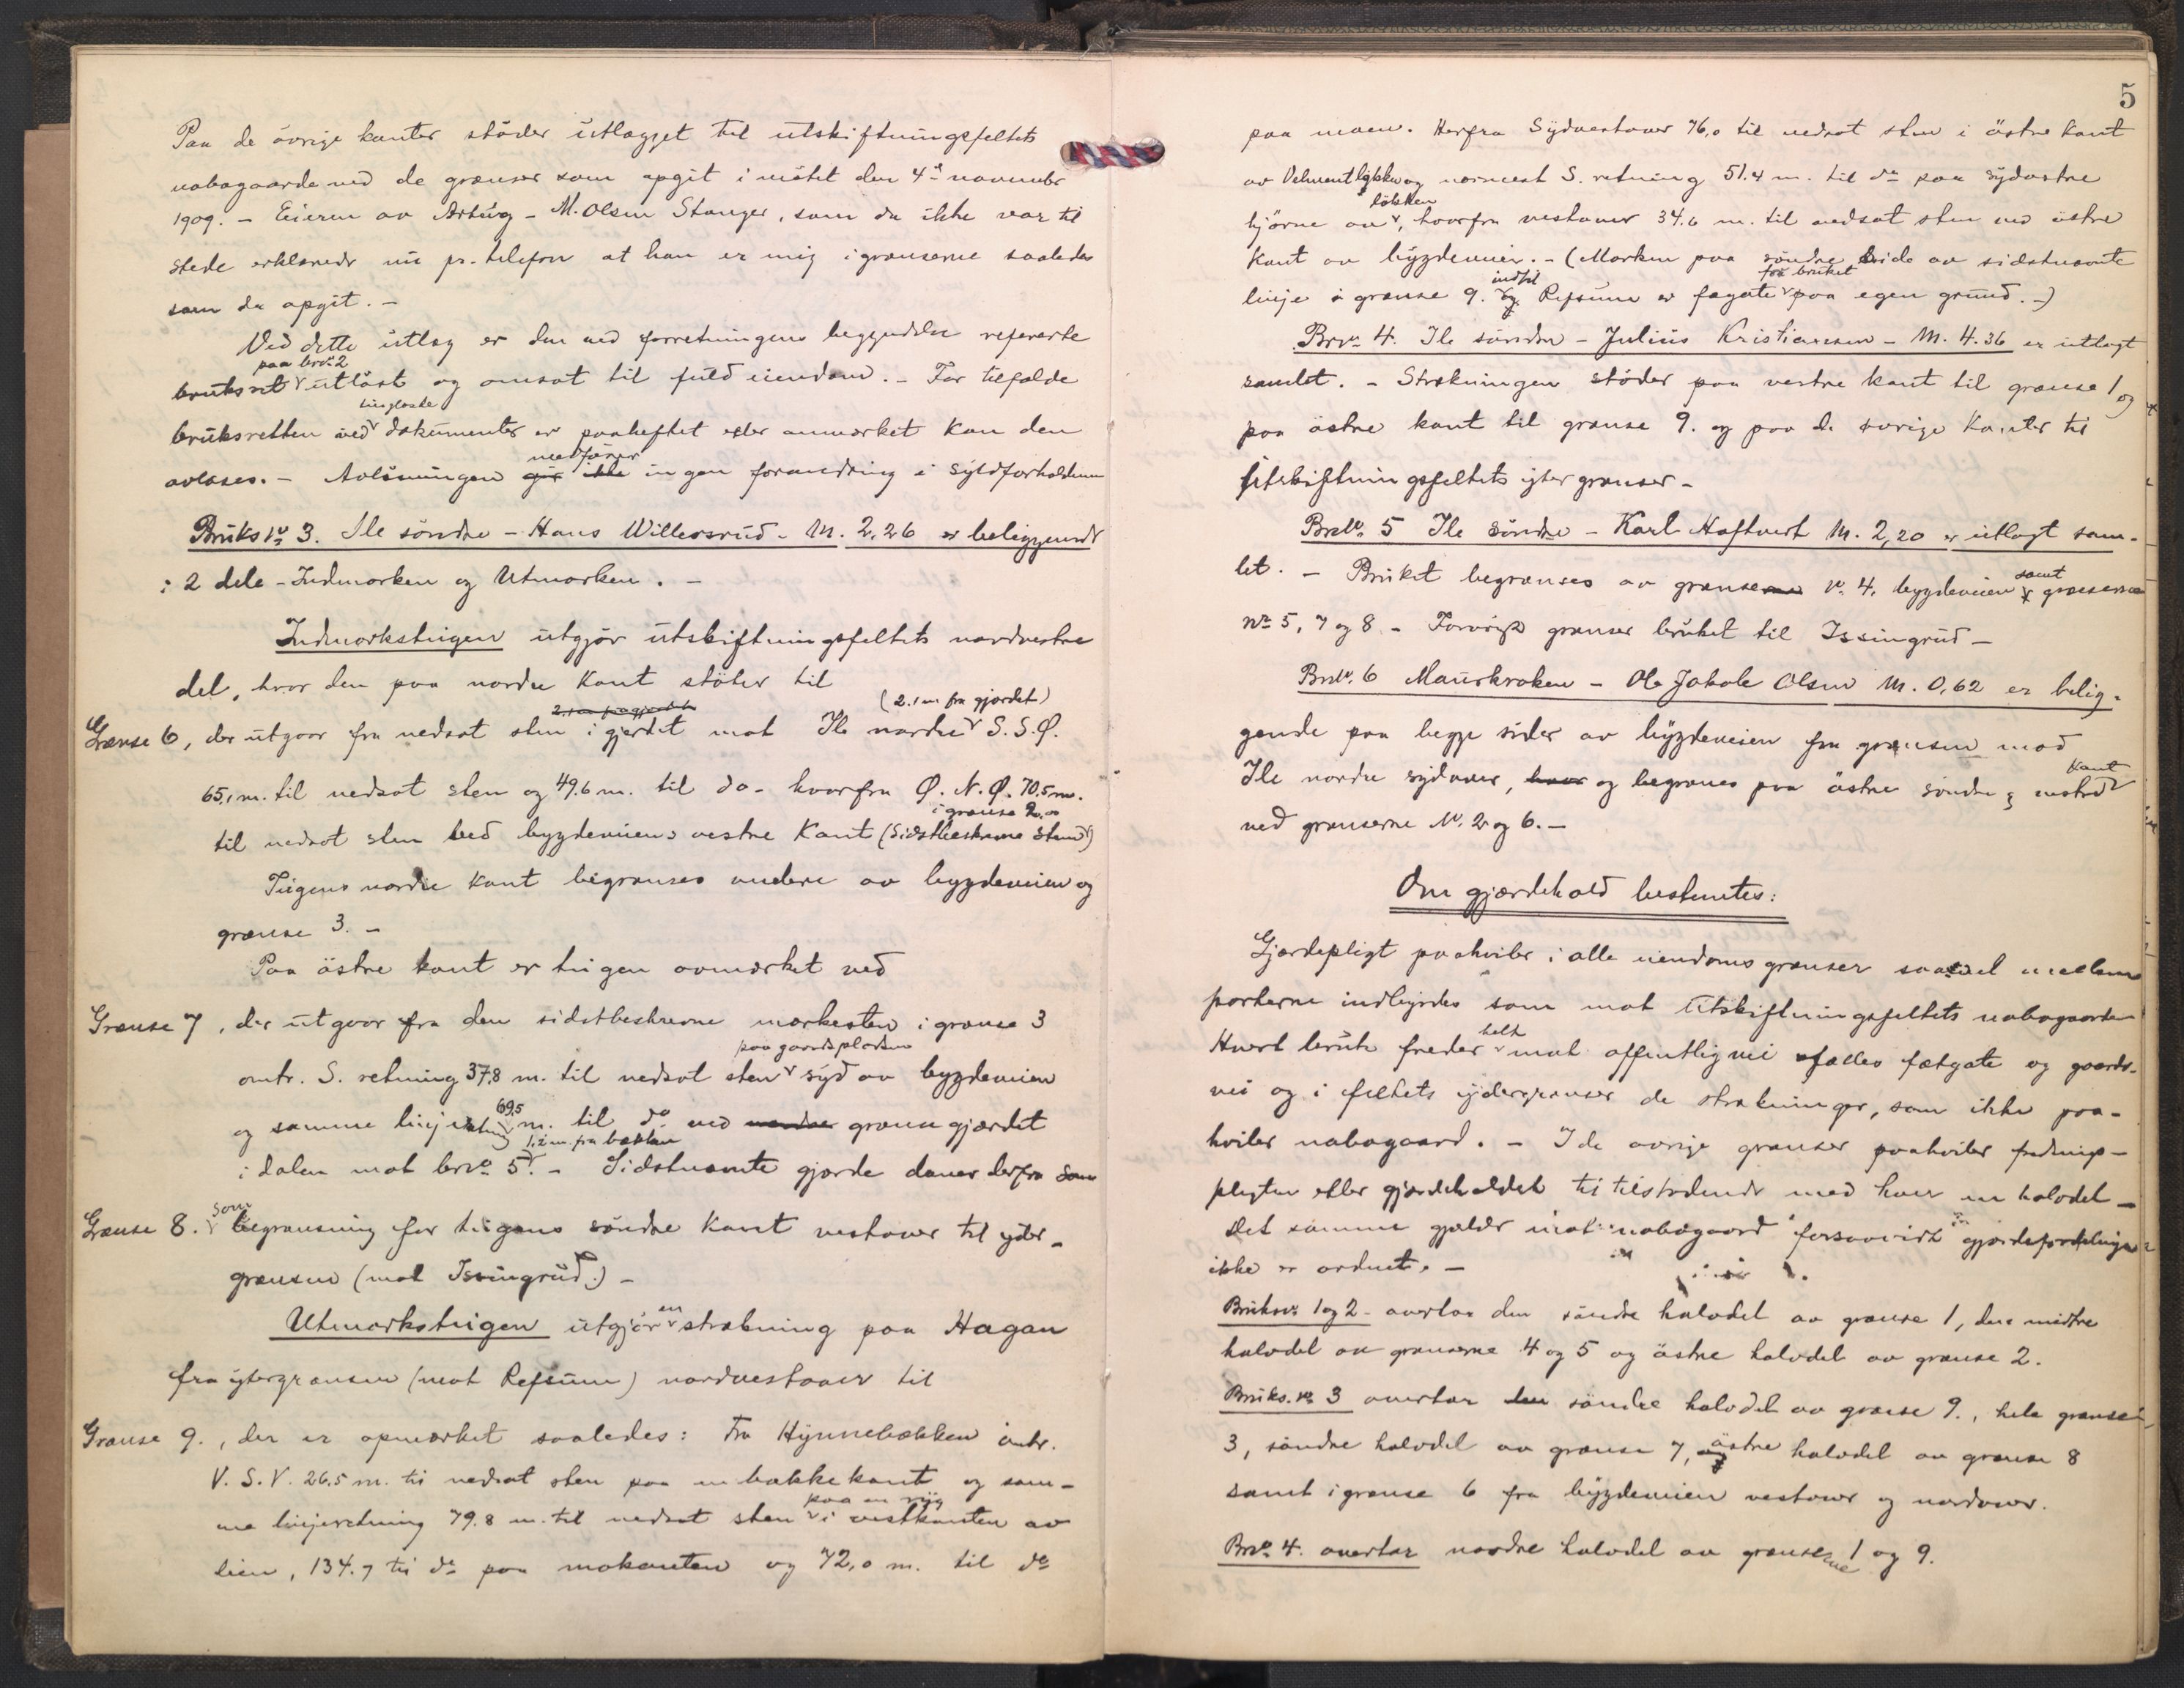 Paa de övrige kanter støder utlægget til utskiftningsfeltets
nabogaarde med de grænser som opgit i mötet den 4de november
1909. – Eieren av Asting – M. Olsen Stanger, som da ikke var til
stede erklærede nu pr. telefon at han er enig i grænserne saaledes
som da opgit. –
Ved dette utlæg er den ved forretningens begyndelse refererte
paa brno 2
bruksret utløst og omsat til fuld eiendom. – For tilfælde
tinglæste
bruksretten ved dokumenter er paaheftet eller anmerket kan den
medförer
avlöses. – Avlösningen gir ikke ingen forandring i Skyldforholdene
Bruksno 3. Ile söndre – Hans Willersrud – M. 2,26 er beliggende
i 2 dele – Indmarken og Utmarken. –
Indmarksteigen utgjør utskiftningsfeltets nordvestre
del, hvor den paa nordre Kant støter til
2.1 m fra gjerdet (2.1 m fra gjærdet)
Grænse 6, der utgaar fra nedsat sten i gjerdet mot Ile nordre S.S.Ø.
65,1 m. til nedsat sten og 49.6 m. til do – hvorfra Ø.N.Ø. 70,5 m.
i grænse 2
til nedsat sten ved bygdeveiens vestre Kant (Sidstbeskrevne Sten)
Teigens nordre Kant begrænses videre av bygdeveien og
grænse 3. –
Paa östre kant er teigen avmerket ved
Grænse 7, der utgaar fra den sidstbeskrevne merkesten i grænse 3
paa gaardspladsen
omtr. S. retning 37,8 m. til nedsat sten syd av bygdeveien
69,5
og samme linjeretning m. til do ved nordre grænsegjærdet
1,2 m. fra bækken
i dalen mot brno 5. – Sidstnævnte gjerde danner derfra som
Grænse 8. som begrænsning for teigens söndre Kant vestover til yder-
grænsen (mot Issingrud.) –
en
Utmarksteigen utgjør strækning paa Hagan
fra ytergrænsen (mot Refsum) nordvestover til
Grænse 9., der er opmerket saaledes: Fra Hynnebækken omtr.
V.S.V. 26.5 m. til nedsat sten paa en bakkekant og sam-
paa en ryg
me linjeretning 79.8 m. til nedsat sten i vestkanten av
lien, 134.7 til do paa mokanten og 72,0 m. til do
5
paa moen. Herfra Sydvestover 76,0 til nedsat sten i östre Kant
av og nærmest S. retning 51.4 m. til do paa sydøstre
løkken
hjørne av, hvorfra vestover 34.6 m. til nedsat sten ved östre
Kant av bygdeveien. – (Marken paa söndre side av sidstnævnte
indtil for bruket
linje i grænse 9. og Refsum er fægate paa egen grund. –)
Brno 4. Ile söndre – Julius Kristiansen – M. 4.36 er utlagt
samlet. – Strækningen støder paa vestre kant til grænse 1 og
paa östre kant til grænse 9. og paa de øvrige Kanter til
Utskiftningsfeltets ytergrænser –
Brno 5 Ile Söndre – Karl Haftvert M. 2,20 er utlagt sam-
let. – Bruket begrænses av grænserne no 4, bygdeveien samt grænserne
no 5, 7 og 8 – Forøvrig grænser bruket til Issingrud –
Brno 6 Maurkroken – Ole Jakob Olsen M. 0,62 er belig-
gende paa begge sider av bygdeveien fra grænsen mod
Kant
Ile nordre sydover, hvor og begrænses paa östre söndre og vestre
ved grænserne No 2 og 6. –
Om gjærdehold bestemtes:
Gjærdepligt paahviler i alle eiendomsgrænser saavel mellem
parterne indbyrdes som mot Utskiftningsfeltets nabogaarde
helt
Hvert bruk freder mot offentlig vei fælles fægate og gaards-
vei og i feltets ydergrænser de strækninger, som ikke paa-
hviler nabogaard. – I de øvrige grænser paahviler frednings-
pligten eller gjærdeholdet til tilstødende med hver en halvdel –
Det samme gjælder mot nabogaard forsaavidt gjærdefordelingen
ikke er ordnet. –
Bruksno 1 og 2 – overtar den söndre halvdel av grænse 1, den midtre
halvdel av grænserne 4 og 5 og östre halvdel av grænse 2.
Bruks.no 3 overtar den söndre halvdel av grænse 9., hele grænse
3, söndre halvdel av grænse 7, og östre halvdel av grænse 8
samt i grænse 6 fra bygdeveien vestover og nordover.
Brno 4. overtar nordre halvdel av grænserne 1 og 9.